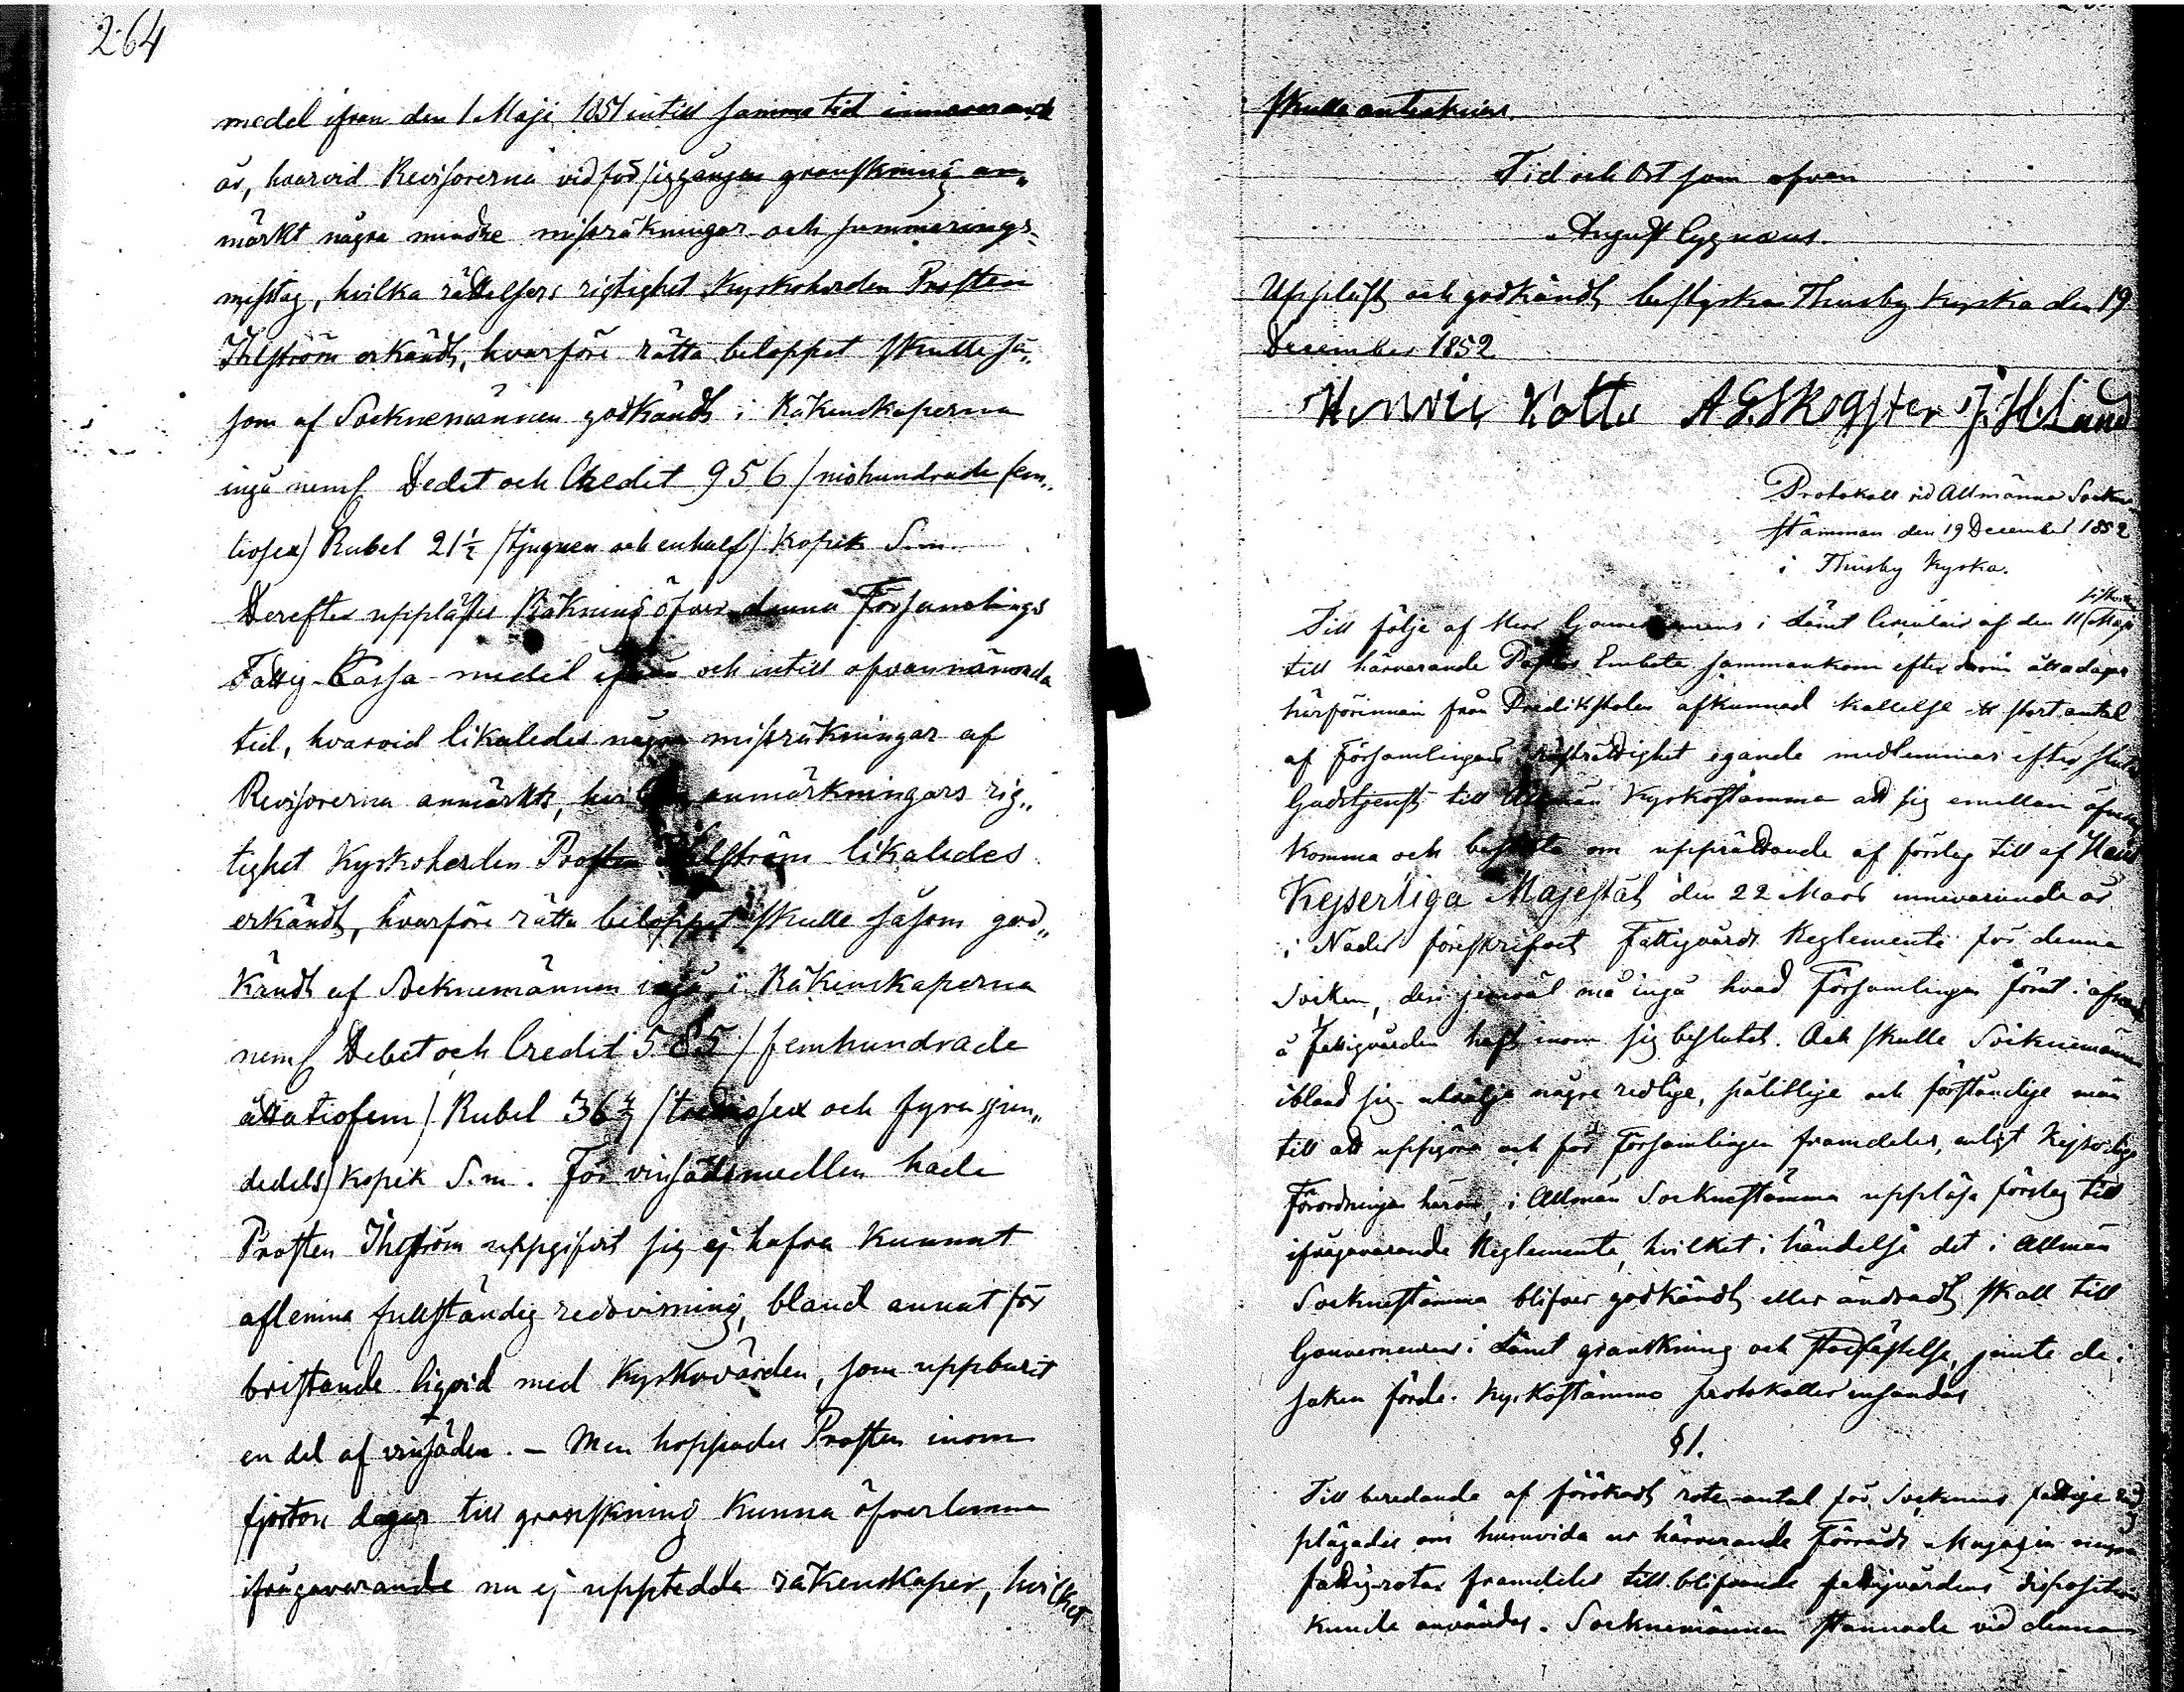 264
medel ifrån den 1 Maji 1851 intill samma tid innevarande
år, hvarvid Revisorerna vid försiggången granskning an„
märkt några mindre missräkningar och summerings-
misstag, hvilka rättelsers rigtighet Kyrkoherden Prosten
Ihlström erkändt, hvarföre rätta beloppet skulle så„
som af Socknemännen godkändt i Räkenskaperna
ingå neml Debet och Credit 956 /niohundrade fem„
tiosex/ Rubel 21½ /tjuguen och enhalf/ Kopek S.m.
Derefter upplästes Räkning öfver denna Församlings
Fattig-Cassa-medel ifrån och intill ofvannämnda
tid, hvarvid likaledes några missräkningar af
Revisorerna anmärkts, hvilka anmärkningars rig„
tighet Kyrkoherden Prosten Ihlström likaledes
erkändt, hvarföre rätta beloppet skulle såsom god„
kändt af Socknemännen ingå i Räkenskaperna
neml Debet och Credit 585 /femhundrade
åttatiofem/ Rubel 36 4/7 /trettiosex och fyra sjun„
dedels/ Kopek S.m. För vinsädsmedlen hade
Prosten Ihlström uppgifvit sig ej hafva kunnat
aflemna fullständig redovisning, bland annat för
bristande liqvid med Kyrkovärden, som uppburit
en del af vinsäden. - Men hoppades Prosten inom
fjorton dagar till granskning kunna öfverlemna
ifrågavarande nu ej uppteddа räkenskaper, hvilket
skulle antecknas.
Tid och Ort som ofvan
August Cygnæus.
Uppläst och godkändt bestyrka Thusby Kyrka den 19
December 1852
Henric Kotte A G Skogster J. H. Lund
Protokoll vid Allmänna Sockne-
stämman den 19 December 1852
i Thusby Kyrka.
Till följe af Herr Gouverneurens i Länet Circulair af den 11 sistl. Maji
till härvarande Pastors Embete sammankom efter derom åtta dagar
härförinnan från Predikstolen afkunnad kallelse ett stort antal
af Församlingens rösträttighet egande medlemmar efter slutad
Gudstjenst till Allmän Kyrkostämma att sig emellan öfverens
komma och besluta om upprättande af förslag till af Hans
Kejserliga Majestät den 22 Mars innevarande år
i Nåder föreskrifvet Fattigvårds Reglemente för denna
Socken, deri jemväl må ingå hvad Församlingen förut i afseende
å fattigvården haft inom sig beslutet. Och skulle Socknemännen
ibland sig utvälja några redlige, pålitlige och förståndige män
till att uppgöra och för Församlingen framdeles, enligt Kejserliga
Förordningen härom, i Allmän Socknestämma uppläsa förslag till
ifrågavarande Reglemente, hvilket i händelse det i Allmän
Socknestämma blifver godkändt eller ändradt skall till
Gouverneurens i Länet granskning och stadfästelse, jemte de i
saken förde Kyrkostämmo protokoller insändas
§1.
Till beredande af förökadt rote-antal för Socknens fattige råd
plägades om huruvida ur härvarande Förråds Magazin några
fattig-rotar framdeles till blifvande fattigvårdens disposition
kunde användas. Socknemännen stannade vid denna